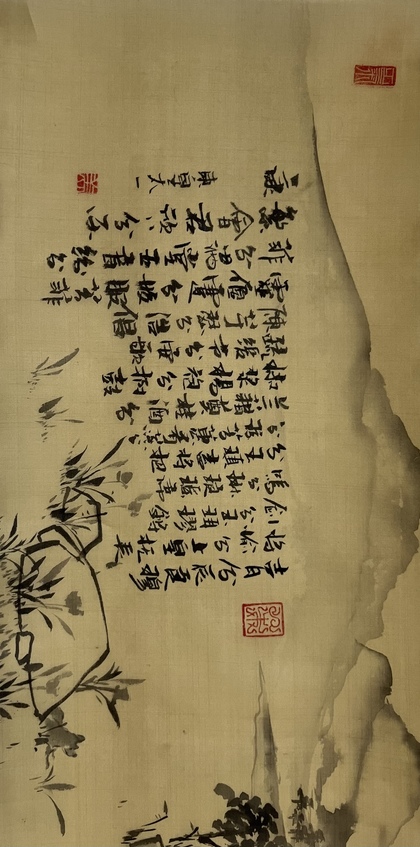 吉日兮辰良穆
将愉兮上皇撫長
劍兮玉珥璆鏘
鳴兮琳琅瑶席
兮玉瑱盍將把
兮瓊芳蕙肴蒸
兮蘭藉奠桂酒兮
椒漿揚枹兮拊鼓
疏緩節兮安歌
陳竽瑟兮浩倡
靈偃蹇兮姣服芳菲
菲兮滿堂五音紛兮
繁會君欣欣兮樂
康
東皇太一